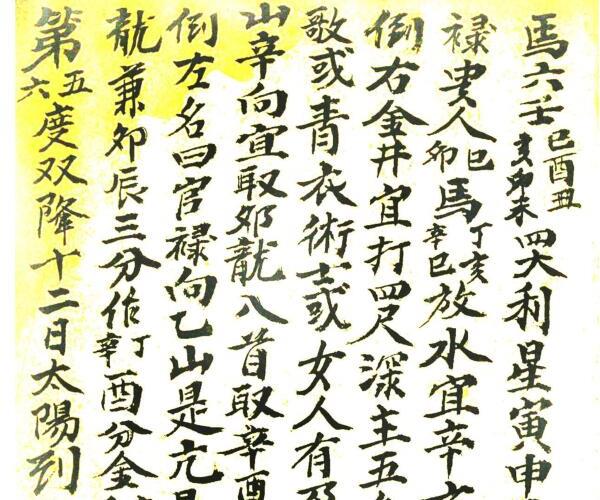 馬六壬巳酉丑亥卯未四大利星寅申
禄貴人卯巳馬辛巳丁亥放水宜辛
倒右金井宜打四尺深主五
歌或青衣術士或女人有
山辛向宜取卯龍入首取辛酉
倒左名曰官禄向乙山是亢
龍兼卯辰三分作辛丁酉分金
第六五度双降十二日太陽到